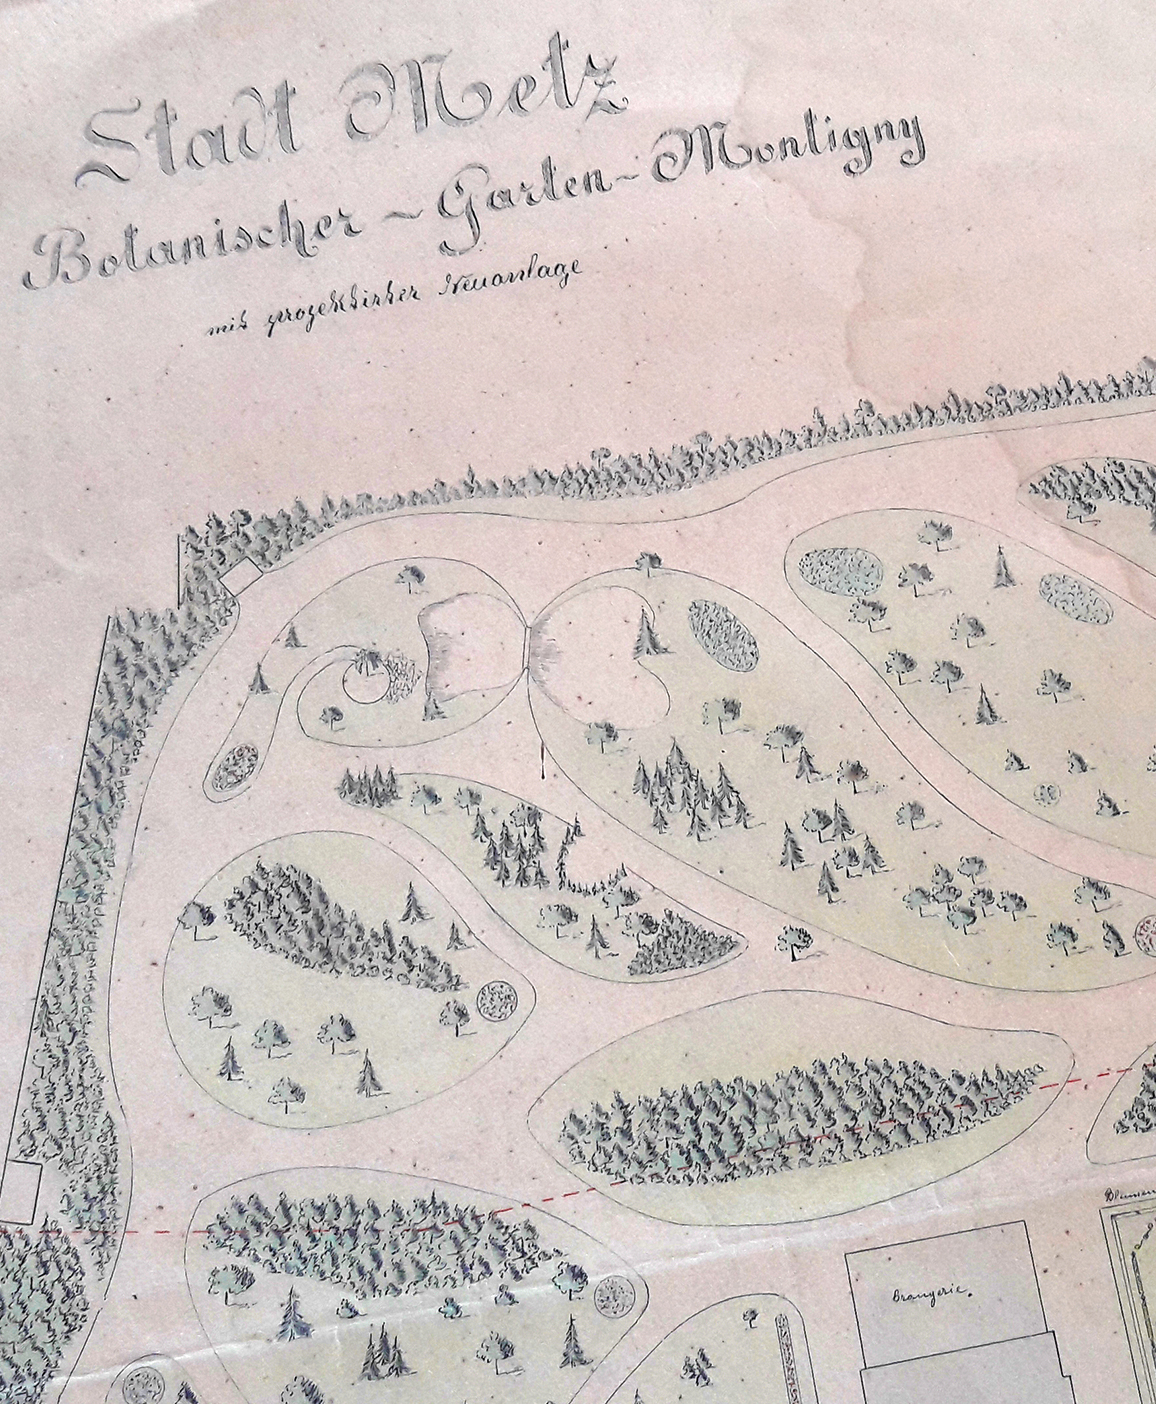 Stadt Metz
Botanischer - Garten - Montigny
mit projektirter Neuanlage
Blumen
Orangerie.